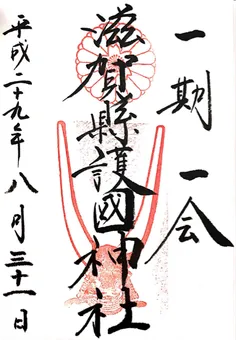 一期一会
滋賀縣護國神社
平成二十九年八月三十一日